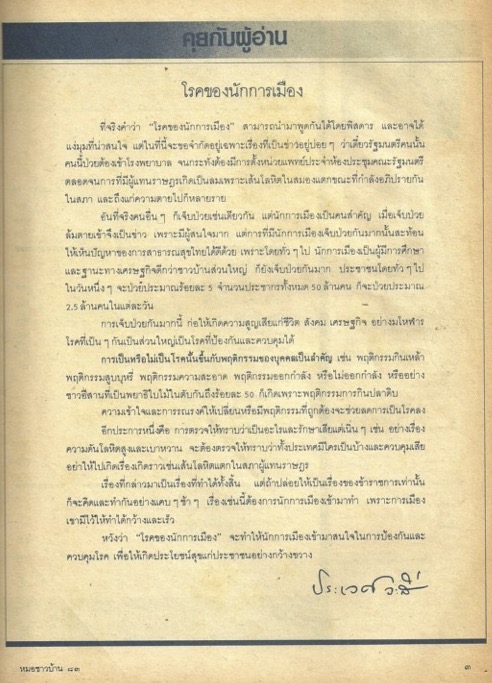 คุยกับผู้อ่าน
โรคของนักการเมือง
ที่จริงคำว่า “โรคของนักการเมือง” สามารถนำมาพูดกันได้โดยพิสดาร และอาจได้
แง่มุมที่น่าสนใจ แต่ในที่นี้จะขอจำกัดอยู่เฉพาะเรื่องที่เป็นข่าวอยู่บ่อยๆ ว่าเดี๋ยวรัฐมนตรีคนนั้น
คนนี้ป่วยต้องเข้าโรงพยาบาล จนกระทั่งต้องมีการตั้งหน่วยแพทย์ประจำห้องประชุมคณะรัฐมนตรี
ตลอดจนการที่มีผู้แทนราษฎรเกิดเป็นลมเพราะเส้นโลหิตในสมองแตกขณะที่กำลังอภิปรายกัน
ในสภา และถึงแก่ความตายไปก็หลายราย
อันที่จริงคนอื่นๆ ก็เจ็บป่วยเช่นเดียวกัน แต่นักการเมืองเป็นคนสำคัญ เมื่อเจ็บป่วย
ล้มตายเข้าจึงเป็นข่าว เพราะมีผู้สนใจมาก แต่การที่มีนักการเมืองเจ็บป่วยกันมากนั้นสะท้อน
ให้เห็นปัญหาของการสาธารณสุขไทยได้ดีด้วย เพราะโดยทั่วๆ ไป นักการเมืองเป็นผู้มีการศึกษา
และฐานะทางเศรษฐกิจดีกว่าชาวบ้านส่วนใหญ่ ก็ยังเจ็บป่วยกันมาก ประชาชนโดยทั่วๆ ไป
ในวันหนึ่งๆ จะป่วยประมาณร้อยละ 5 จำนวนประชากรทั้งหมด 50 ล้านคน ก็จะป่วยประมาณ
2.5 ล้านคนในแต่ละวัน
การเจ็บป่วยกันมากนี้ ก่อให้เกิดความสูญเสียแก่ชีวิต สังคม เศรษฐกิจ อย่างมโหฬาร
โรคที่เป็นๆ กันเป็นส่วนใหญ่เป็นโรคที่ป้องกันและควบคุมได้
การเป็นหรือไม่เป็นโรคนั้นขึ้นกับพฤติกรรมของบุคคลเป็นสำคัญ เช่น พฤติกรรมกินเหล้า
พฤติกรรมสูบบุหรี่ พฤติกรรมความสะอาด พฤติกรรมออกกำลัง หรือไม่ออกกำลัง หรืออย่าง
ชาวอีสานที่เป็นพยาธิใบไม้ในตับกันถึงร้อยละ 50 ก็เกิดเพราะพฤติกรรมการกินปลาดิบ
ความเข้าใจและการรณรงค์ให้เปลี่ยนหรือมีพฤติกรรมที่ถูกต้องจะช่วยลดการเป็นโรคลง
อีกประการหนึ่งคือ การตรวจให้ทราบว่าเป็นอะไรและรักษาเสียแต่เนิ่นๆ เช่น อย่างเรื่อง
ความดันโลหิตสูงและเบาหวาน จะต้องตรวจให้ทราบว่าทั้งประเทศมีใครเป็นบ้างและควบคุมเสีย
อย่าให้ไปเกิดเรื่องเกิดราวเช่นเส้นโลหิตแตกในสภาผู้แทนราษฎร
เรื่องที่กล่าวมาเป็นเรื่องที่ทำได้ทั้งสิ้น แต่ถ้าปล่อยให้เป็นเรื่องของข้าราชการเท่านั้น
ก็จะคิดและทำกันอย่างแคบๆ ช้าๆ เรื่องเช่นนี้ต้องการนักการเมืองเข้ามาทำ เพราะการเมือง
เขามีไว้ให้ทำได้กว้างและเร็ว
หวังว่า “โรคของนักการเมือง” จะทำให้นักการเมืองเข้ามาสนใจในการป้องกันและ
ควบคุมโรค เพื่อให้เกิดประโยชน์สุขแก่ประชาชนอย่างกว้างขวาง
ประเวศ วะสี
หมอชาวบ้าน ๘๓
๓